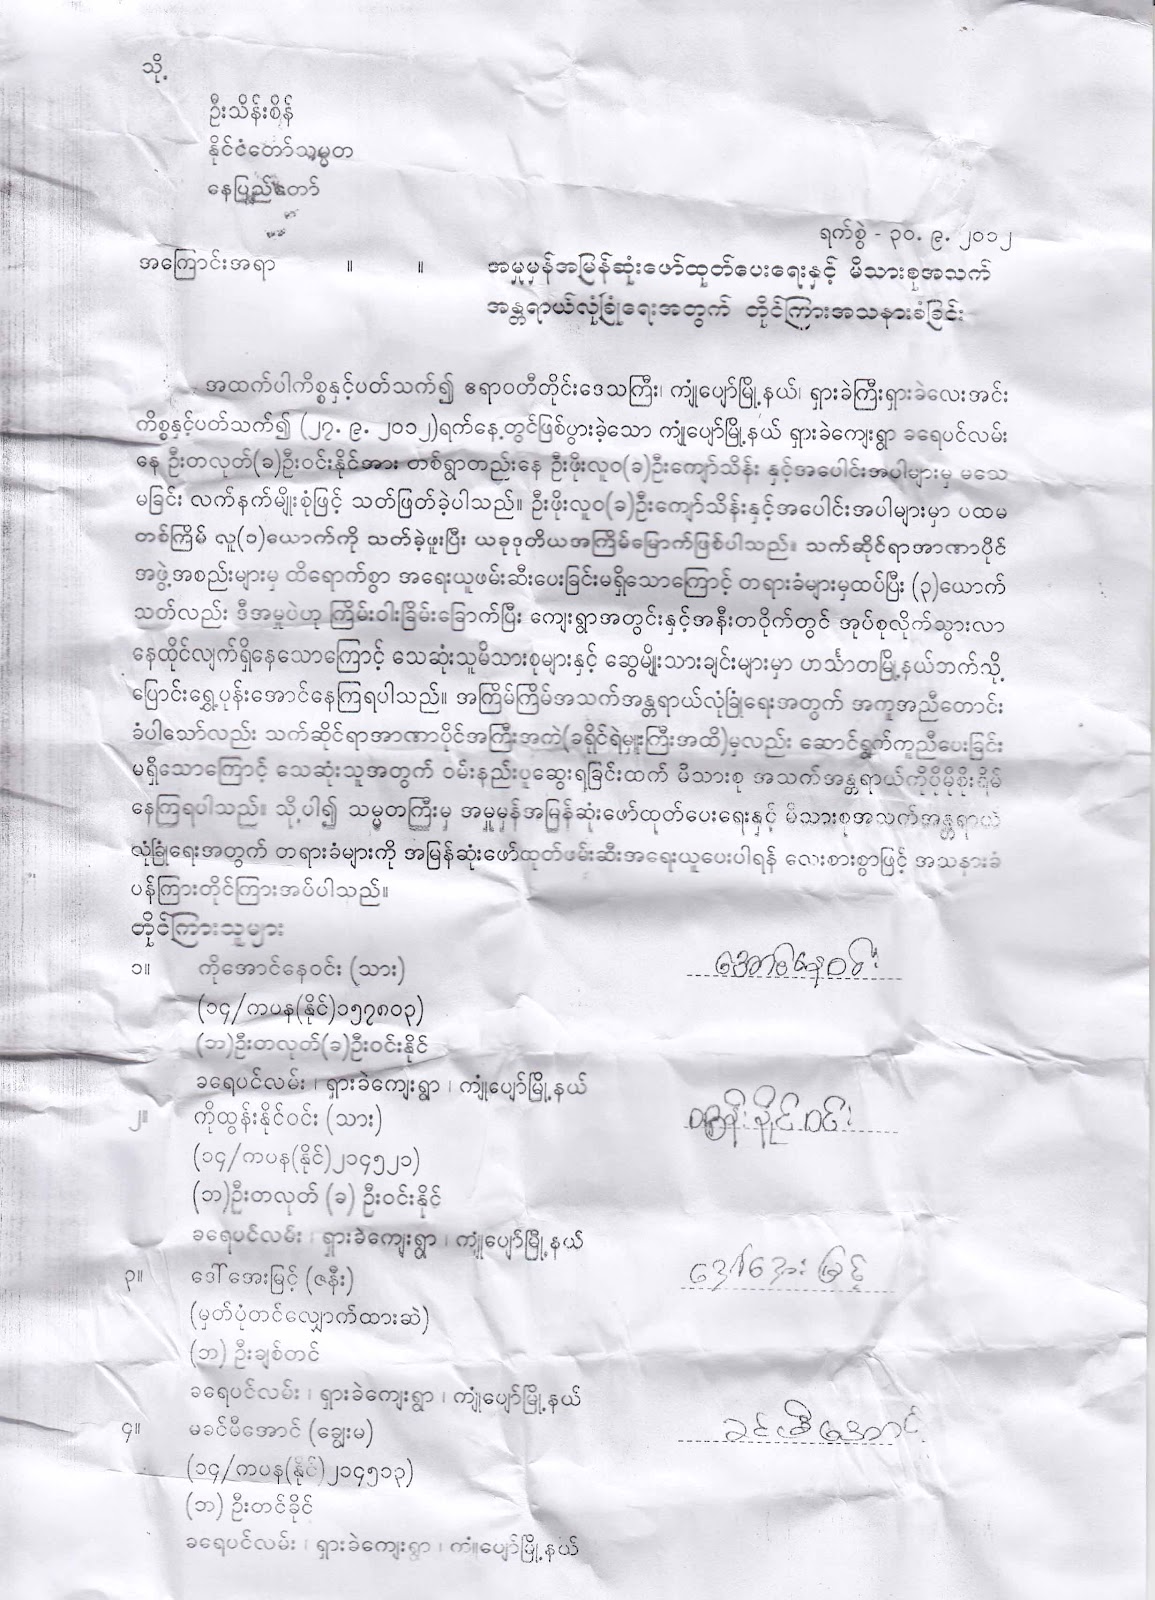 သို့
ဦးသိန်းစိန်
နိုင်ငံတော်သမ္မတ
နေပြည်တော်
ရက်စွဲ - ၃၀. ၉. ၂၀၁၂
အကြောင်းအရာ ။ ။ အမှုမှန်အမြန်ဆုံးဖော်ထုတ်ပေးရေးနှင့် မိသားစုအသက်
အန္တရာယ်လုံခြုံရေးအတွက် တိုင်ကြားအသနားခံခြင်း
အထက်ပါကိစ္စနှင့်ပတ်သက်၍ ဧရာဝတီတိုင်းဒေသကြီး၊ ကျုံပျော်မြို့နယ်၊ ရှားခဲကြီးရှားခဲလေးအင်း
ကိစ္စနှင့်ပတ်သက်၍ (၂၇. ၉. ၂၀၁၂)ရက်နေ့တွင်ဖြစ်ပွားခဲ့သော ကျုံပျော်မြို့နယ် ရှားခဲကျေးရွာ ခရေပင်လမ်း
နေ ဦးတလုတ်(ခ)ဦးဝင်းနိုင်အား တစ်ရွာတည်းနေ ဦးဖိုးလူဝ(ခ)ဦးကျော်သိန်း နှင့်အပေါင်းအပါများမှ မသေ
မခြင်း လက်နက်မျိုးစုံဖြင့် သတ်ဖြတ်ခဲ့ပါသည်။ ဦးဖိုးလူဝ(ခ)ဦးကျော်သိန်းနှင့်အပေါင်းအပါများမှာ ပထမ
တစ်ကြိမ် လူ(၁)ယောက်ကို သတ်ခဲ့ဖူးပြီး ယခုဒုတိယအကြိမ်မြောက်ဖြစ်ပါသည်။ သက်ဆိုင်ရာအာဏာပိုင်
အဖွဲ့အစည်းများမှ ထိရောက်စွာ အရေးယူဖမ်းဆီးပေးခြင်းမရှိသောကြောင့် တရားခံများမှထပ်ပြီး (၃)ယောက်
သတ်လည်း ဒီအမှုပဲဟု ကြိမ်းဝါးခြိမ်းခြောက်ပြီး ကျေးရွာအတွင်းနှင့်အနီးတဝိုက်တွင် အုပ်စုလိုက်သွားလာ
နေထိုင်လျက်ရှိနေသောကြောင့် သေဆုံးသူမိသားစုများနှင့် ဆွေမျိုးသားချင်းများမှာ ဟင်္သာတမြို့နယ်ဘက်သို့
ပြောင်းရွှေ့ပုန်းအောင်နေကြရပါသည်။ အကြိမ်ကြိမ်အသက်အန္တရာယ်လုံခြုံရေးအတွက် အကူအညီတောင်း
ခံပါသော်လည်း သက်ဆိုင်ရာအာဏာပိုင်အကြီးအကဲ(ခရိုင်ရဲမှူးကြီးအထိ)မှလည်း ဆောင်ရွက်ကူညီပေးခြင်း
မရှိသောကြောင့် သေဆုံးသူအတွက် ဝမ်းနည်းပူဆွေးရခြင်းထက် မိသားစု အသက်အန္တရာယ်ကိုပိုမိုစိုးရိမ်
နေကြရပါသည်။ သို့ပါ၍ သမ္မတကြီးမှ အမှုမှန်အမြန်ဆုံးဖော်ထုတ်ပေးရေးနှင့် မိသားစုအသက်အန္တရာယ်
လုံခြုံရေးအတွက် တရားခံများကို အမြန်ဆုံးဖော်ထုတ်ဖမ်းဆီးအရေးယူပေးပါရန် လေးစားစွာဖြင့် အသနားခံ
ပန်ကြားတိုင်ကြားအပ်ပါသည်။
တိုင်ကြားသူများ
၁။ ကိုအောင်နေဝင်း (သား) အောင်နေဝင်း
(၁၄/ကပန(နိုင်)၁၅၇၈၀၃)
(ဘ)ဦးတလုတ်(ခ)ဦးဝင်းနိုင်
ခရေပင်လမ်း ၊ ရှားခဲကျေးရွာ ၊ ကျုံပျော်မြို့နယ်
၂။ ကိုထွန်းနိုင်ဝင်း (သား) ထွန်းနိုင်ဝင်း
(၁၄/ကပန(နိုင်)၂၁၄၅၂၁)
(ဘ)ဦးတလုတ် (ခ) ဦးဝင်းနိုင်
ခရေပင်လမ်း ၊ ရှားခဲကျေးရွာ ၊ ကျုံပျော်မြို့နယ်
၃။ ဒေါ်အေးမြင့် (ဇနီး) ဒေါ်အေးမြင့်
(မှတ်ပုံတင်လျှောက်ထားဆဲ)
(ဘ) ဦးချစ်တင်
ခရေပင်လမ်း ၊ ရှားခဲကျေးရွာ ၊ ကျုံပျော်မြို့နယ်
၄။ မခင်မီအောင် (ချွေးမ) ခင်မီအောင်
(၁၄/ကပန(နိုင်)၂၁၄၅၁၃)
(ဘ) ဦးတင်ခိုင်
ခရေပင်လမ်း ၊ ရှားခဲကျေးရွာ ၊ ကျုံပျော်မြို့နယ်